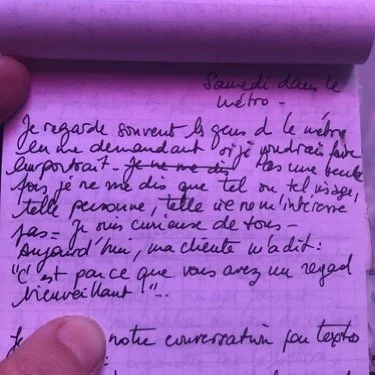 Samedi dans le
métro -
Je regarde souvent les gens d le métro
en me demandant si je voudrais faire
leur portrait - Je ne me dis Pas une seule
fois je ne me dis que tel ou tel visage,
telle personne, telle vie ne m'intéresse
pas = Je suis curieuse de tous -
Aujourd'hui, ma cliente m'a dit :
"C'est parce que vous avez un regard
bienveillant !"...
Je notre conversation par textos